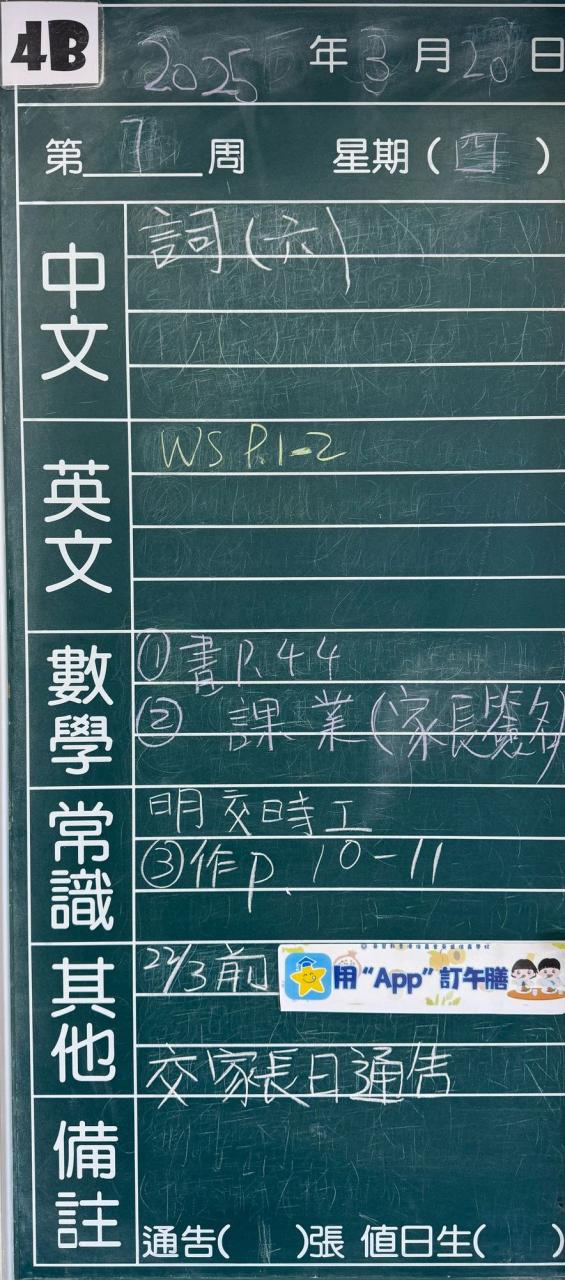 4B
2025年3月20日
第 7 周 星期(四)
中文
詞(六)
英文
WS P.1-2
數學
①書P.44
②課業(家長簽名)
常識
明交時工
③作p.10-11
其他
22/3前
用“App”訂午膳
交家長日通告
備註
通告( )張 值日生( )